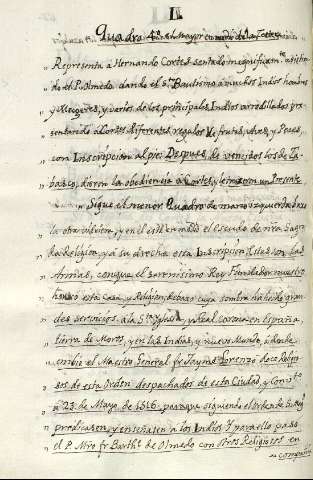 II.
Quadro 4º. y mas Mayor en medio de las Cortes
„ Representa a Hernando Cortes sentado magnificamte. asistido
„ de el P. Olmedo, dando el Sto. Bautismo a muchos Indios hombres
„ y Mugeres, y varios de los principales Indios arrodillados pre-
„ sentando a Cortes diferentes regalos de frutas, Aves, y Peces,
„ con Inscripcion al pie: Despues de vencidos los de Ta-
„ basco, dieron la obediencia a Cortes, y le hicieron un Presente
„ Sigue el menor Quadro de mano izquierda bajo
„ la otra pintura, y en el está el Escudo de nra Sagra-
da Religion, y a su derecha esta Inscripcion: Estas son las
„ Armas, con que el serenisimo Rey Fundador nuestro
„ honró esta Casa, y Religion, debaxo cuya sombra ha hecho gran-
„ des servicios a la Sta. Iglesia y Real corona en España,
„ tierra de Moros, y en las Indias, y nuevo Mundo, adonde
„ embio el Maestro General fr. Jayme Lorenzo doce Religio-
„ sos de esta Orden despachados de esta Ciudad, y Convto.
„ a 23 de Mayo, de 1516. para que siguiendo el orden de su Rey
„ predicasen, y enseñasen a los Indios. Y para ello pasó
„ el P. Mro fr Barthe. de Olmedo con otros Religiosos en